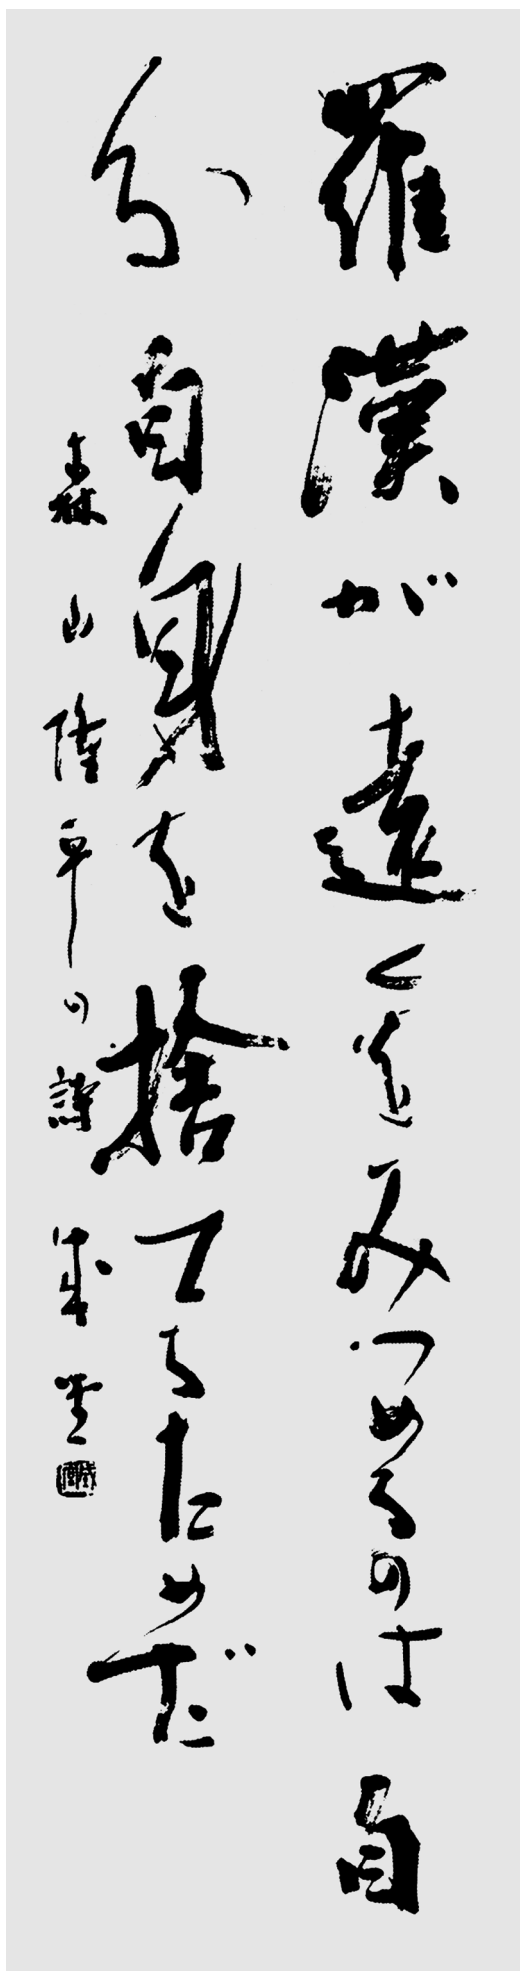 羅漢が遠くをみつめるのは自
分自身を捨てるためだ
森山隆平の詩